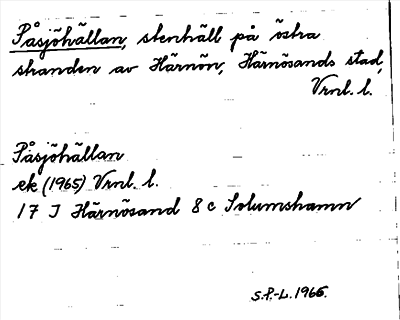 Påsjöhällan, stenhäll på östra
stranden av Härnön, Härnösands stad,
Vrnl. l.
Påsjöhällan
ek (1965) Vrnl. l.
17 J Härnösand 8 c Solumshamn
S.P.-L. 1966.